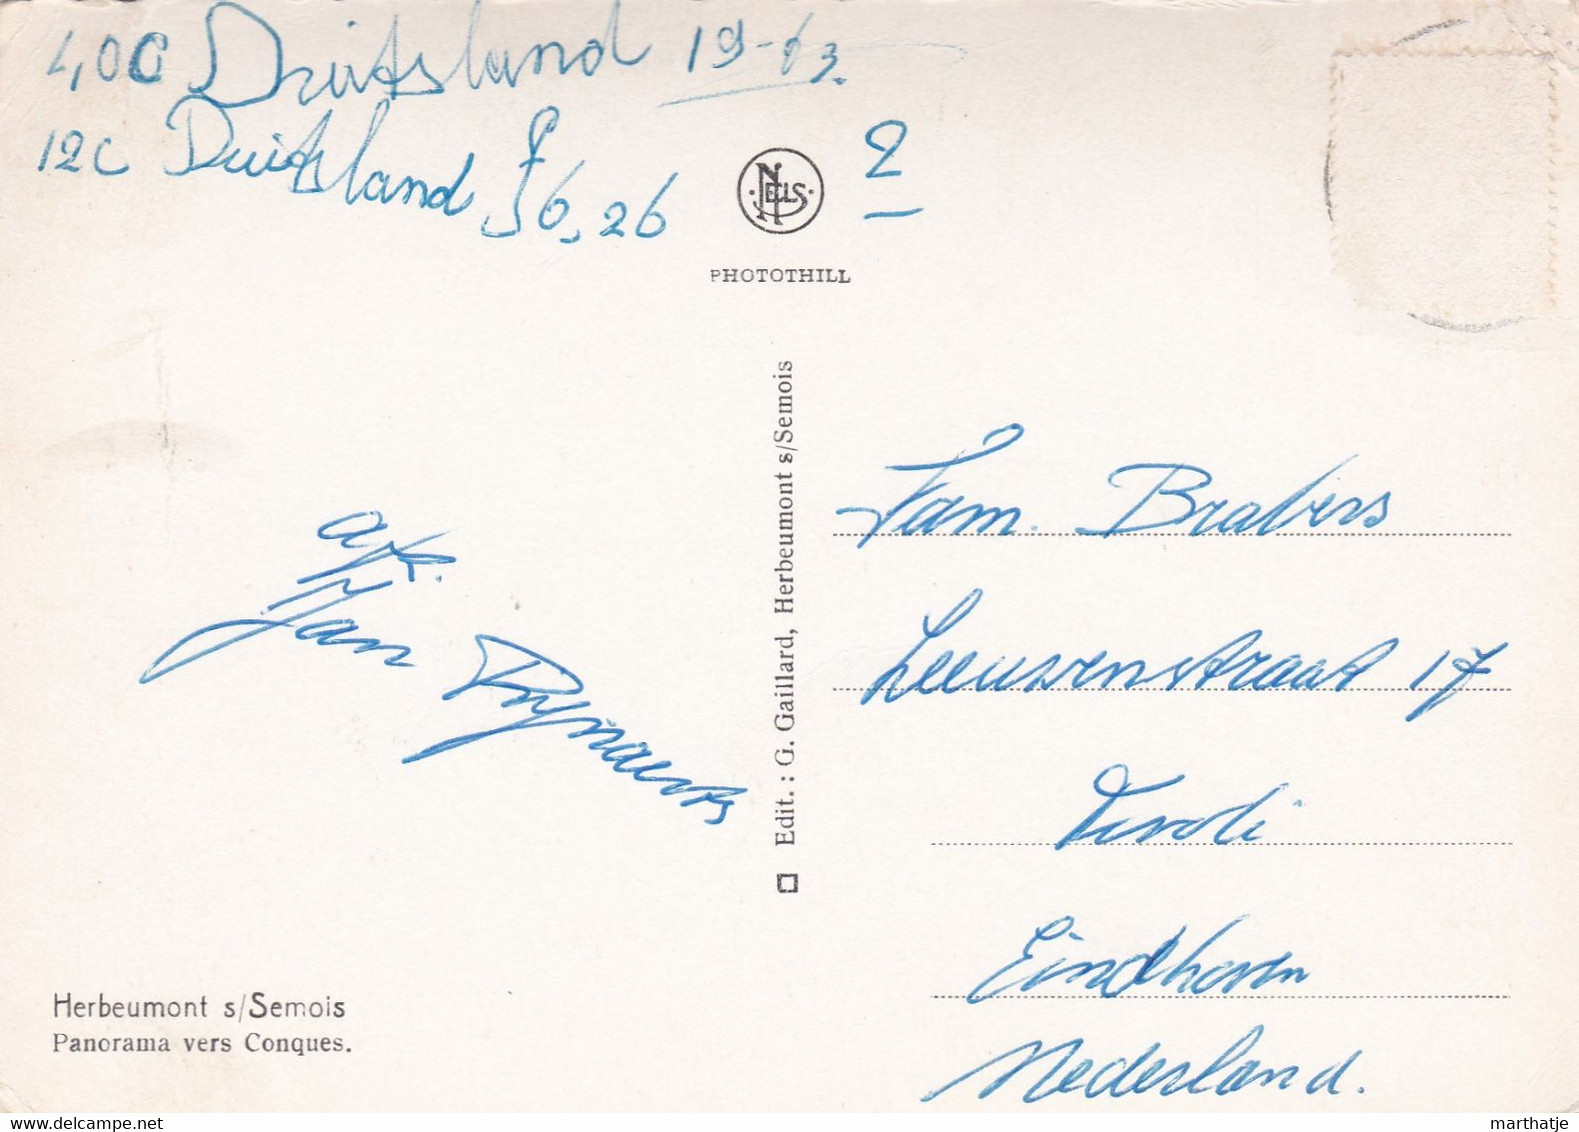 4,00 Duitsland 19-63.
12c Duitsland f 6,26
2
NELS
PHOTOTHILL
Edit. : G. Gaillard, Herbeumont s/Semois
Fam. Brabers
Leeuwenstraat 17
Tivoli
Eindhoven
Nederland.
afz.
Jan
Herbeumont s/Semois
Panorama vers Conques.
marthatje